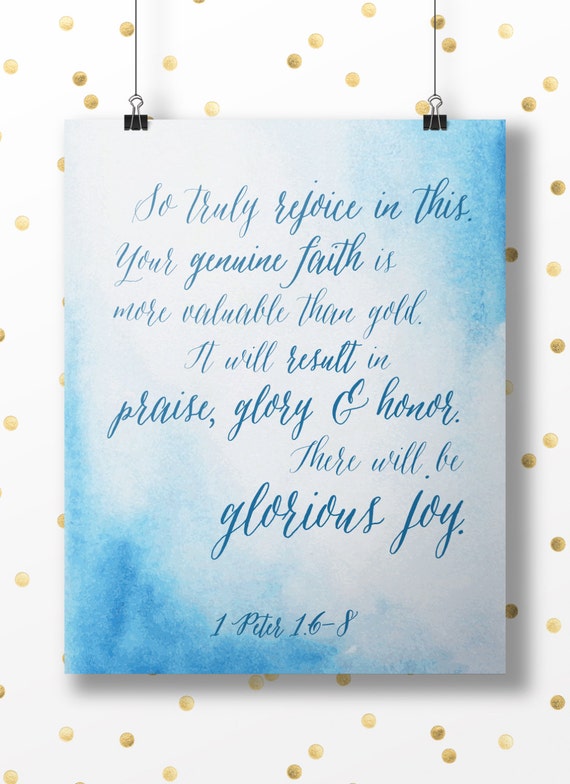 So truly rejoice in this.
Your genuine faith is
more valuable than gold.
It will result in
praise, glory & honor.
There will be
glorious joy.
1 Peter 1.6-8